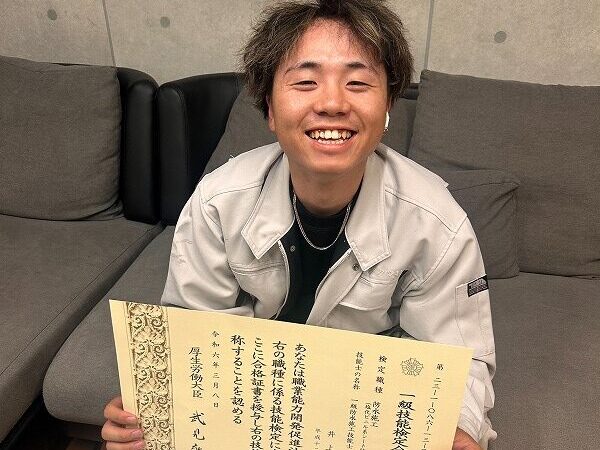 第二三一一〇八六一三一
一級技能検定合
検定職種 防水施工
技能士の名称 一級防水施工技能士
井上
平成十
あなたは職業能力開発促進法
右の職種に係る技能検定に
ここに合格証書を授与し右の技
称することを認める
令和六年三月八日
厚生労働大臣 武見